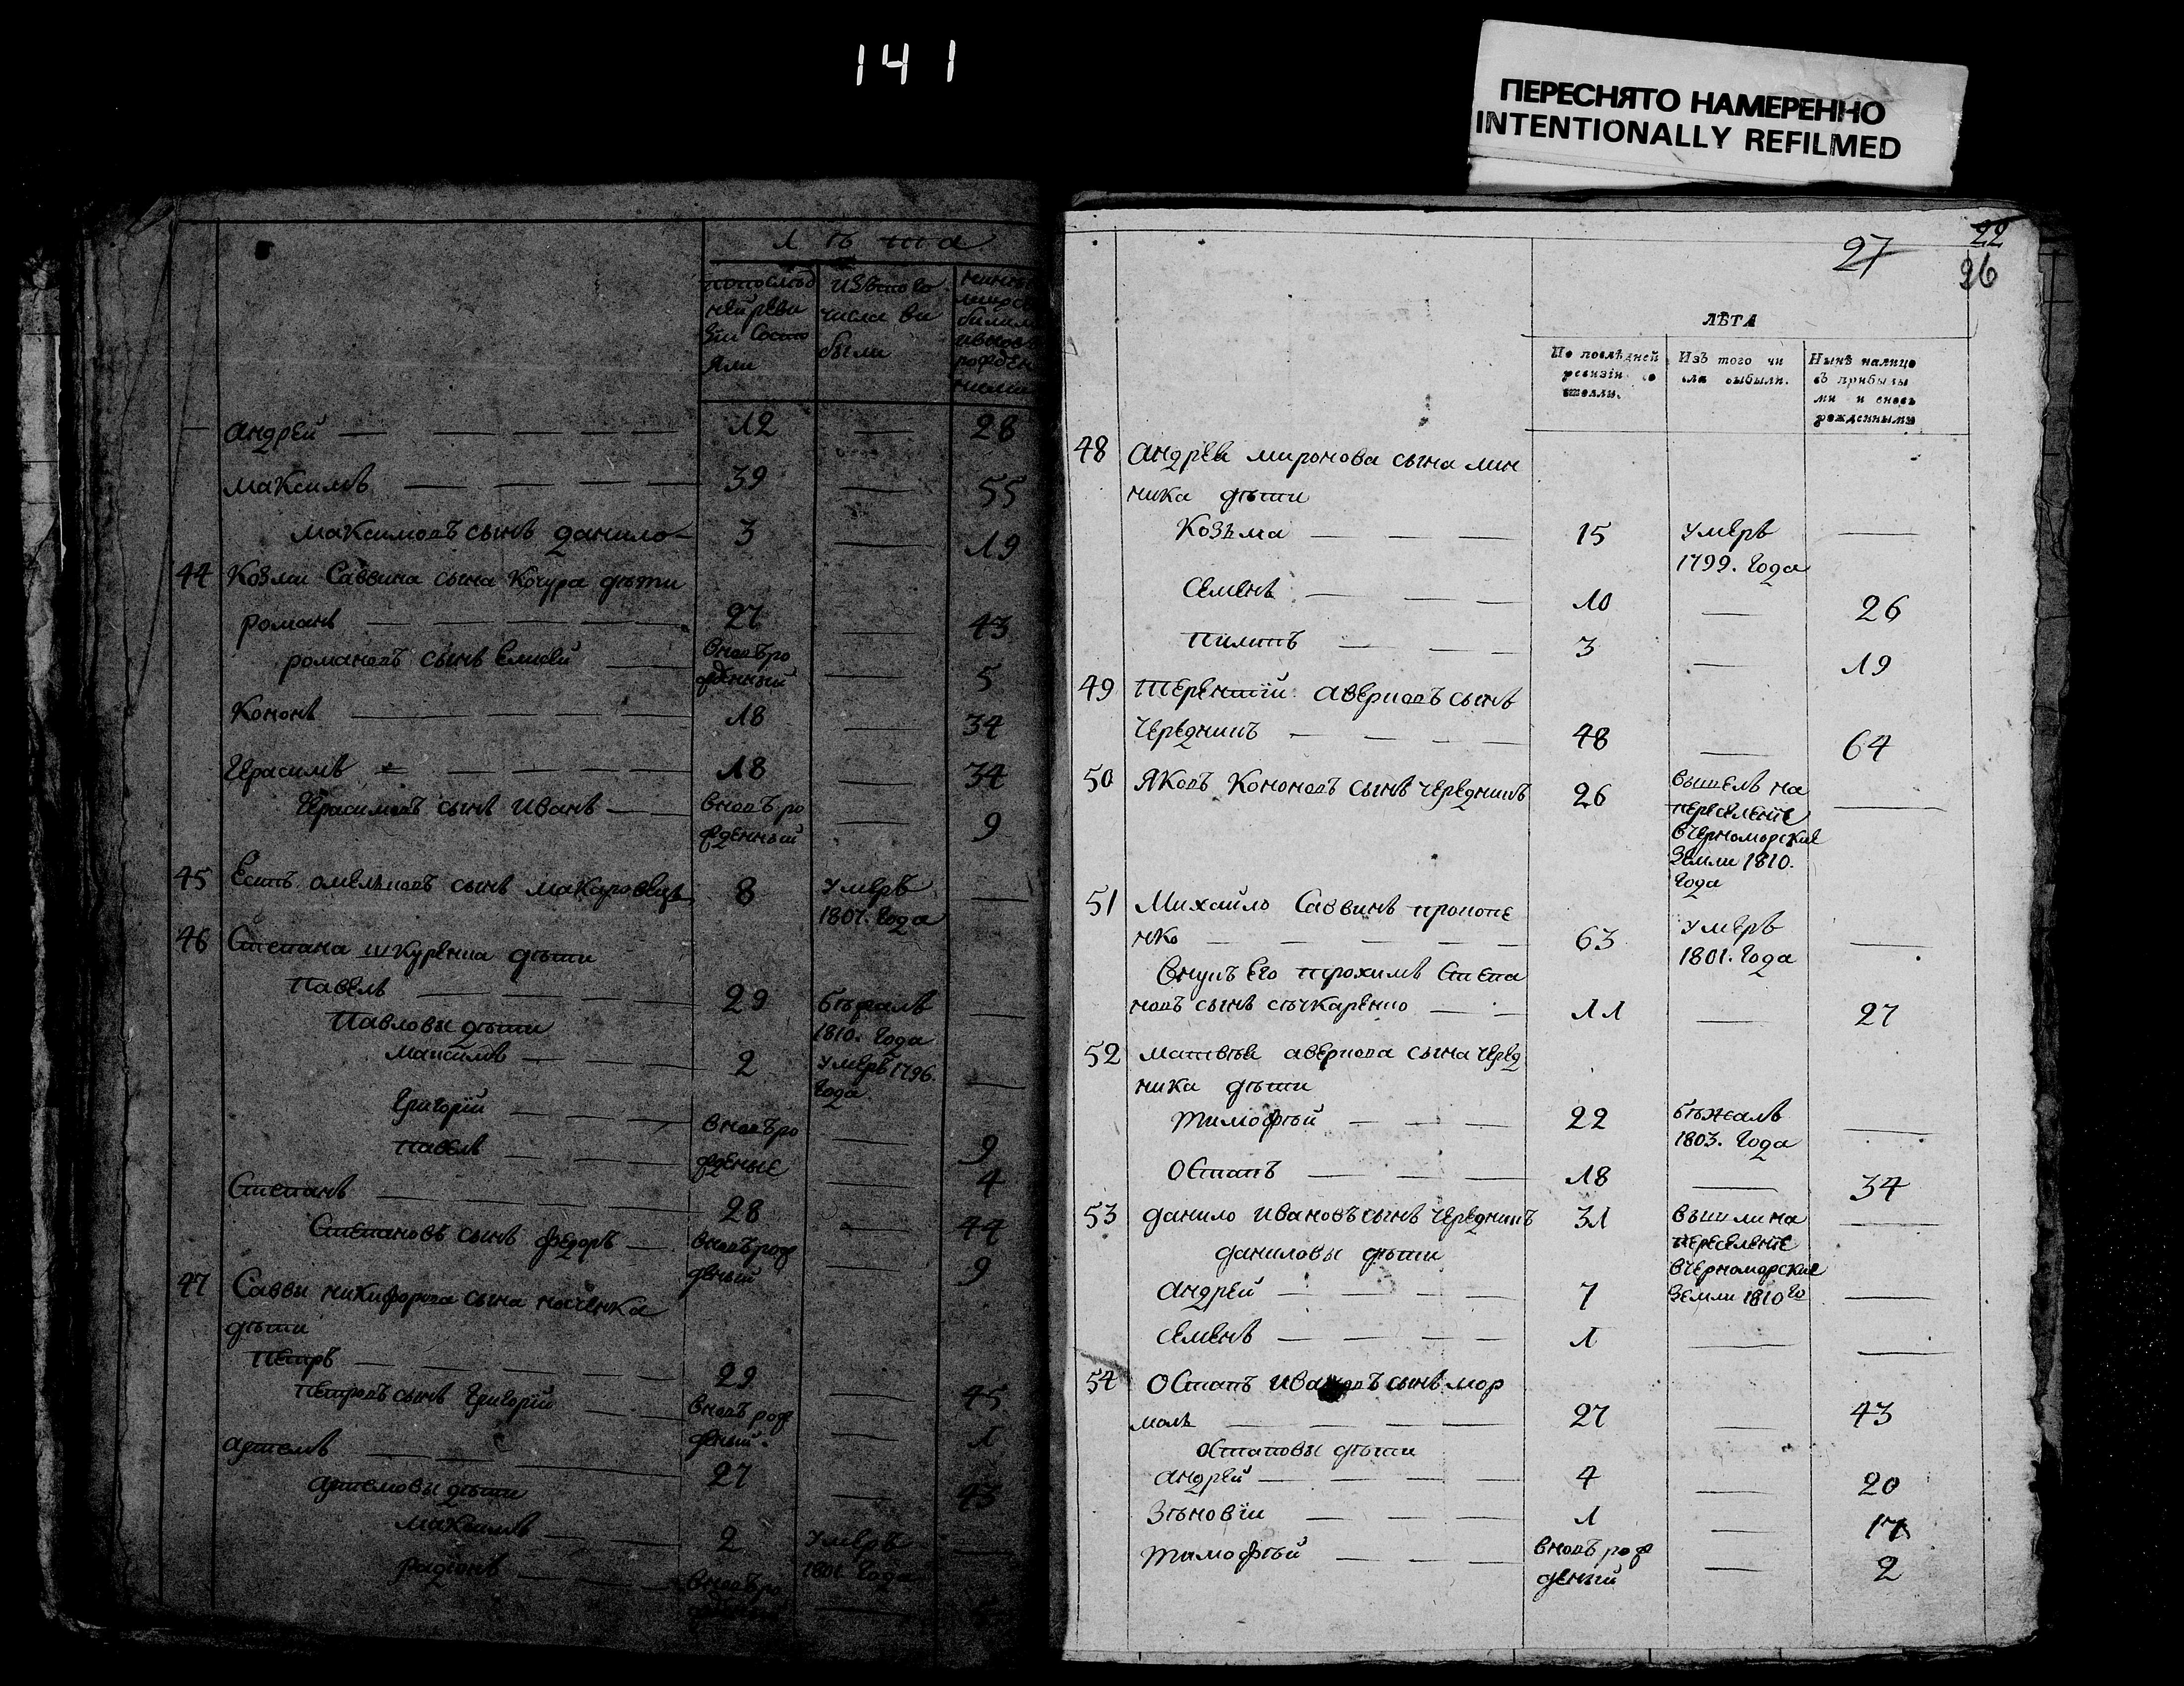 141
ПЕРЕСНЯТО НАМЕРЕННО
INTENTIONALLY REFILMED
Лѣта
попослѣд
ней реви
зіи состо
яли
изтого
числа вы
были
Андрей — 12 — 28
Максимъ — 39 — 55
Максимовъ сынъ Данило — 3 — 19
44 Козми Саввина сына Кочура дѣти
Романъ — 27 — 43
Романовъ сынъ Елисей — вновь ро
жденный — 5
Кононъ — 18 — 34
Герасимъ — 18 — 34
Герасимовъ сынъ Иванъ — вновь ро
жденный — 9
45 Есипъ Омельковъ сынъ Макаровецъ 8 умеръ —
1807. Года
46 Степана Шкуренка дѣти
Павелъ — 29 бѣжалъ —
1810. Года
Павловы дѣти
Максимъ — 2 умеръ 1796. —
Года
Григорій — вновь ро — 9
Павелъ — жденые — 4
Степанъ — 28 — 44
Степановъ сынъ Федоръ — вновь рож
деный — 9
47 Саввы Никифорова сына Носенка
дѣти
Петръ — 29 — 45
Петровъ сынъ Григорій — вновь рож
деный. — 1
Артемъ — 27 — 43
Артемовы дѣти
Максимъ — 2 умеръ —
1801. Года
Радіонъ — вновь ро
22
27
26
ЛѢТА
По послѣдней
ревизіи со
стояли.
Изъ того чи
сла выбыли.
Нынѣ налицо
съ прибылы
ми и вновь
рожденными
48 Андрея Миронова сына Лин
ника дѣти
Козьма — 15 умеръ —
1799. Года
Семенъ — 10 — 26
Пилипъ — 3 — 19
49 Терентій Аверковъ сынъ
Чередникъ — 48 — 64
50 Яковъ Кононовъ сынъ Чередникъ 26 вышелъ на —
переселеніе
вЧерноморские
Земли 1810.
Года
51 Михайло Саввинъ Прокопе
нко — 63 умеръ —
1801. Года
Внукъ Его Трохимъ Степа
новъ сынъ Сѣчкаренко — 11 — 27
52 Матвѣя Аверкова сына Черед
ника дѣти
Тимофѣй — 22 бѣжалъ —
1803. Года
Остапъ — 18 — 34
53 Данило Ивановъ сынъ Чередникъ 31 вышли на —
переселеніе
Даниловы дѣти вЧерноморские
Андрей — 7 Земли 1810 го —
Семенъ — 1 — —
54 Остапъ Ивановъ сынъ Мор
маль — 27 — 43
Остаповы дѣти
Андрей — 4 — 20
Зѣновіи — 1 — 17
Тимофѣй — вновь рож — 2
деный